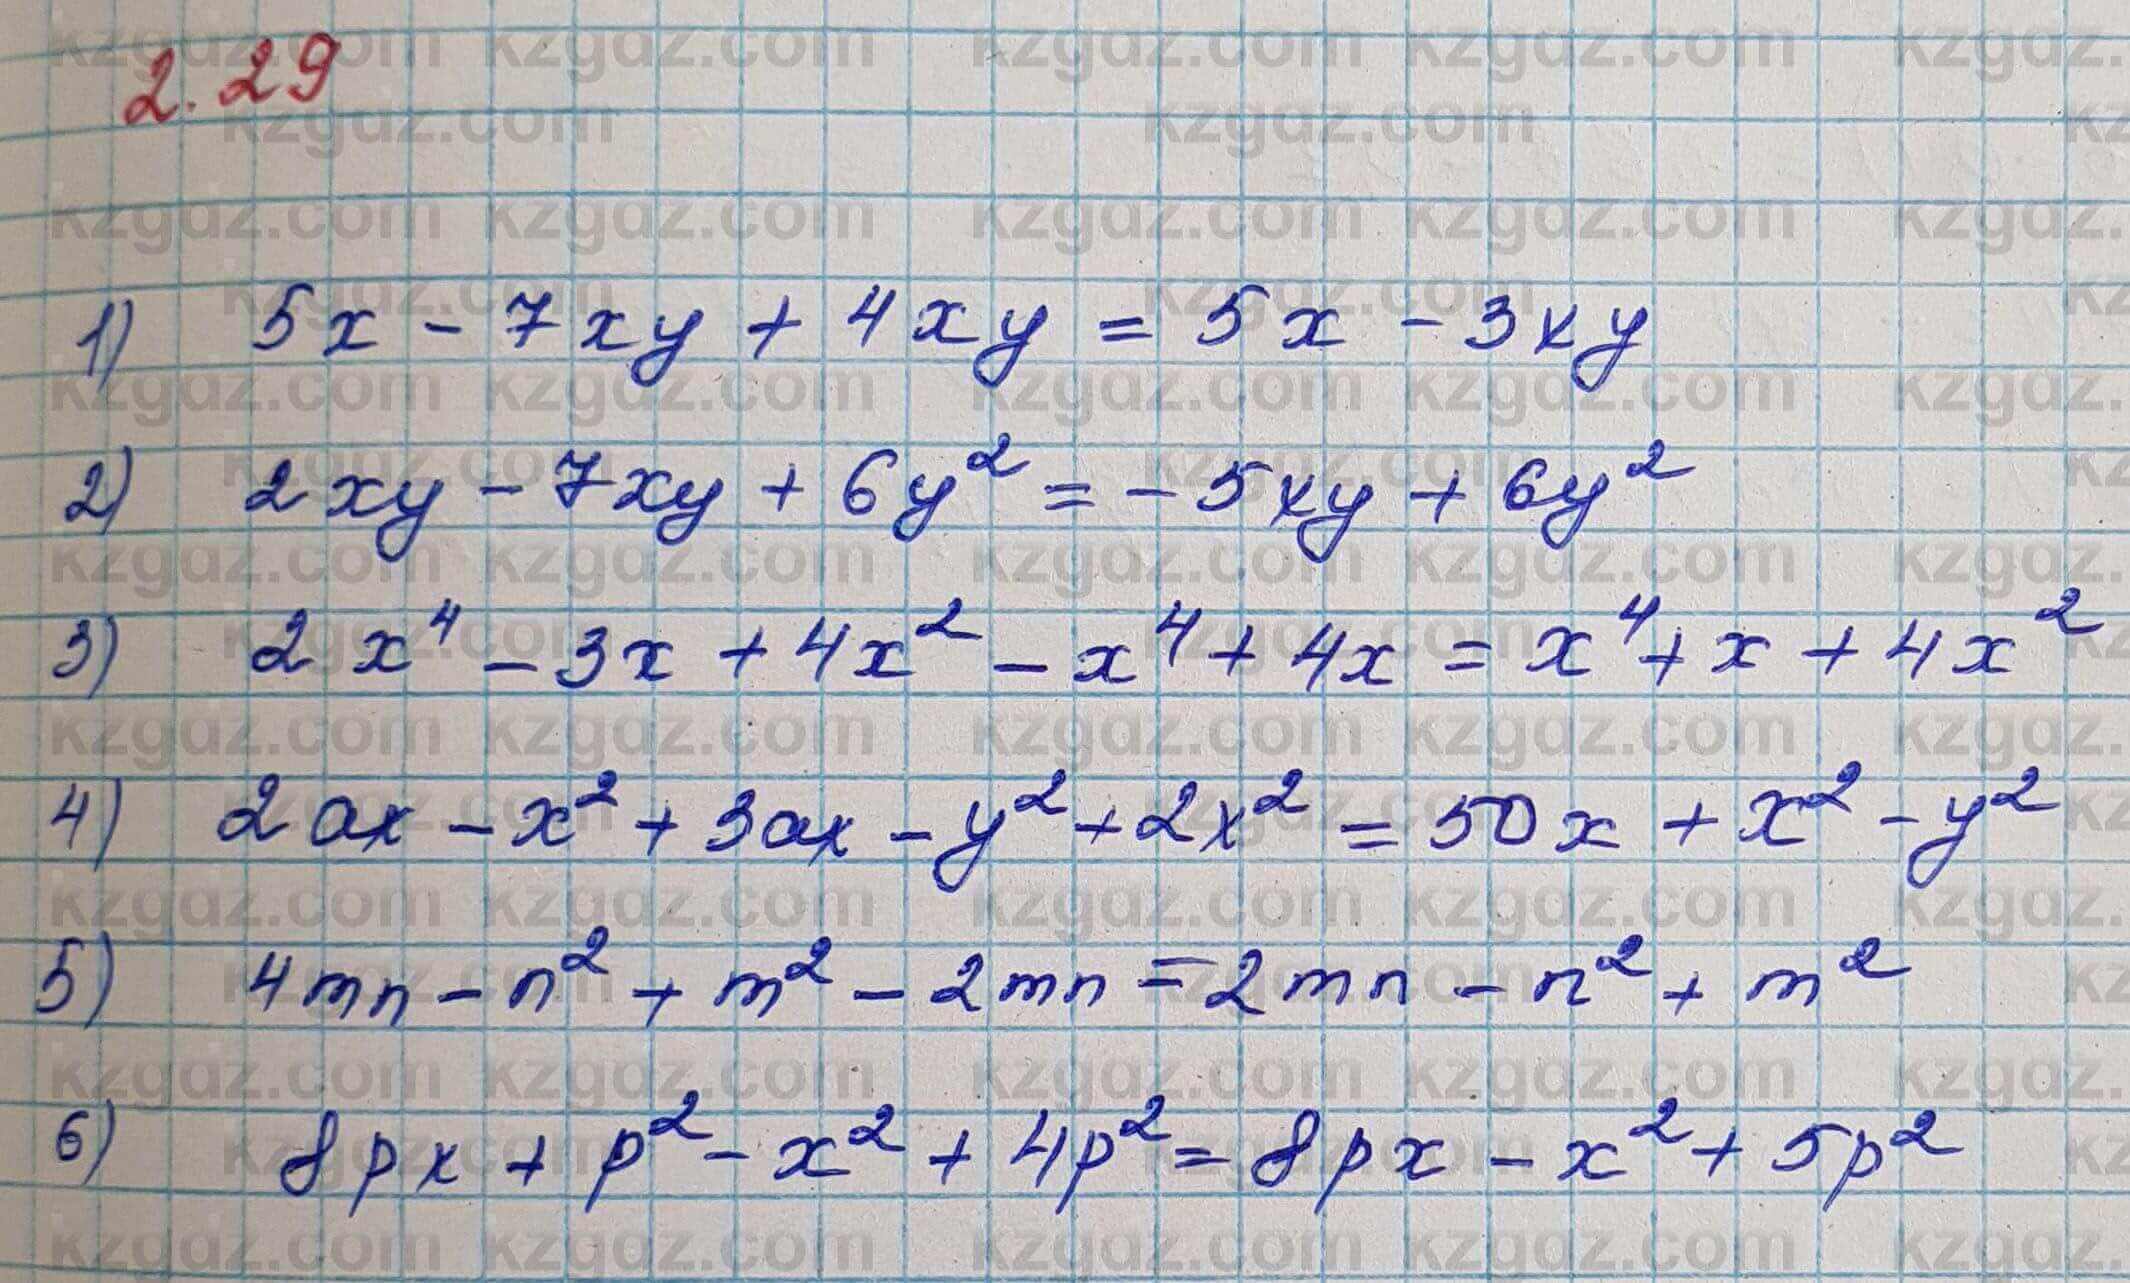 2.29
1) 5x - 7xy + 4xy = 5x - 3xy
2) 2xy - 7xy + 6y² = -5xy + 6y²
3) 2x⁴ - 3x + 4x² - x⁴ + 4x = x⁴ + x + 4x²
4) 2ax - x² + 3ax - y² + 2x² = 50x + x² - y²
5) 4mn - n² + m² - 2mn = 2mn - n² + m²
6) 8px + p² - x² + 4p² = 8px - x² + 5p²
kzgdz.com